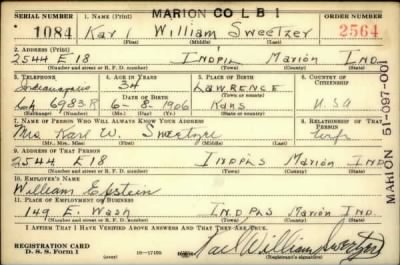 MARION CO L B 1
SERIAL NUMBER 1. NAME (Print) ORDER NUMBER
1084 Karl William Sweetzer 2564
(First) (Middle) (Last)
2. ADDRESS (Print)
2544 E 18 INDPLS Marion IND.
(Number and street or R. F. D. number) (Town) (County) (State)
3. TELEPHONE 4. AGE IN YEARS 5. PLACE OF BIRTH 6. COUNTRY OF CITIZENSHIP
Indianapolis 34 LAWRENCE
DATE OF BIRTH
6983 R 6-8-1906 Kans U.SA
(Exchange) (Number) (Mo.) (Day) (Yr.) (State or country)
7. NAME OF PERSON WHO WILL ALWAYS KNOW YOUR ADDRESS 8. RELATIONSHIP OF THAT PERSON
Mrs. Karl W. Sweetzer wife
(Mr., Mrs., Miss) (First) (Middle) (Last)
9. ADDRESS OF THAT PERSON
2544 E 18 INDPLS Marion IND
(Number and street or R. F. D. number) (Town) (County) (State)
10. EMPLOYER'S NAME
William Epstein
11. PLACE OF EMPLOYMENT OR BUSINESS
149 E. Wash INDPLS Marion IND
(Number and street or R. F. D. number) (Town) (County) (State)
I AFFIRM THAT I HAVE VERIFIED ABOVE ANSWERS AND THAT THEY ARE TRUE.
REGISTRATION CARD
D. S. S. Form 1 Karl William Sweetzer
(Registrant's signature)
MARION 51-097-001